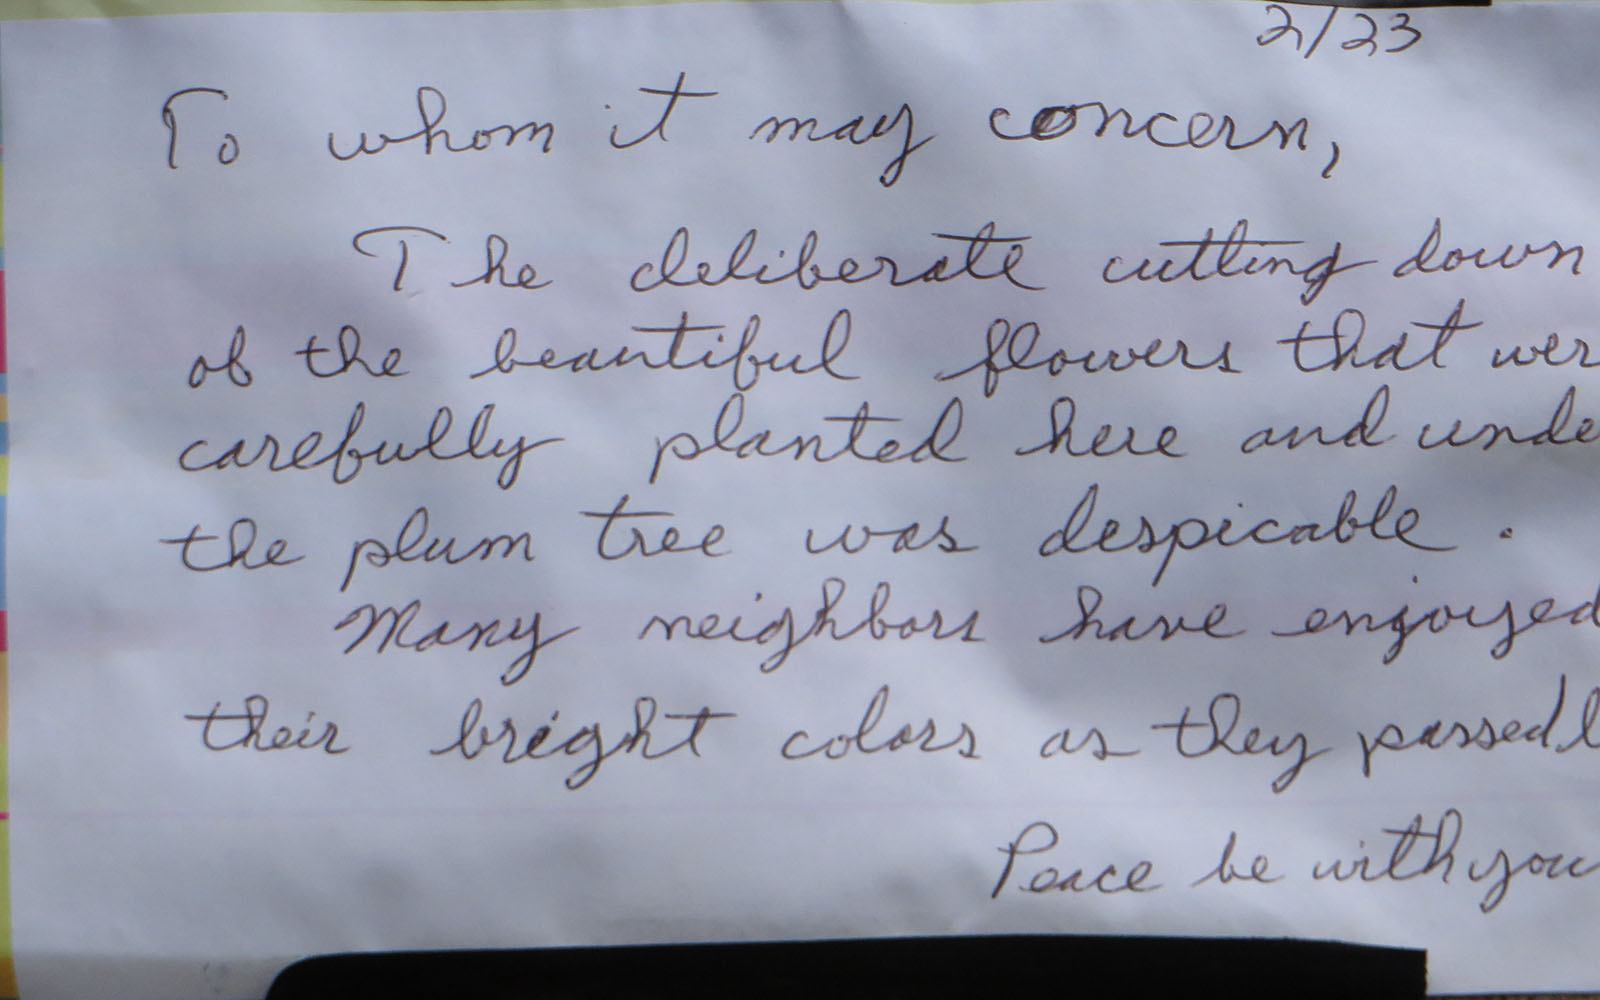 2/23
To whom it may concern,
The deliberate cutting down
of the beautiful flowers that wer
carefully planted here and unde
the plum tree was despicable.
Many neighbors have enjoyed
their bright colors as they passed
Peace be with you